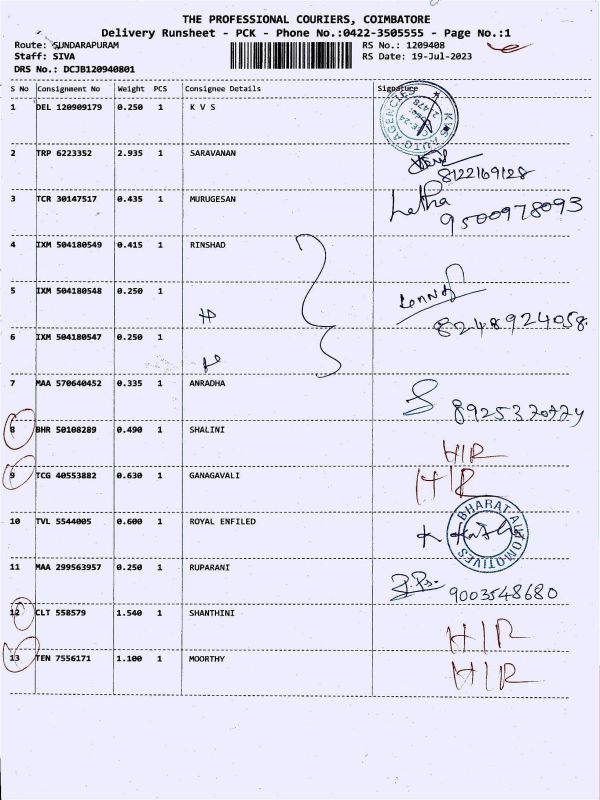 THE PROFESSIONAL COURIERS, COIMBATORE
Delivery Runsheet - PCK - Phone No.:0422-3505555 - Page No.:1
Route: SUNDARAPURAM RS No.: 1209408
Staff: SIVA RS Date: 19-Jul-2023
DRS No.: DCJB120940801
S No Consignment No Weight PCS Consignee Details Signature
1 DEL 120909179 0.250 1 K V S
KVS AUTO AGENCIES
2 TRP 6223352 2.935 1 SARAVANAN
8122169128
3 TCR 30147517 0.435 1 MURUGESAN Letha
9500978093
4 IXM 504180549 0.415 1 RINSHAD
5 IXM 504180548 0.250 1
〃
8248924058
6 IXM 504180547 0.250 1
〃
7 MAA 570640452 0.335 1 ANRADHA
8 BHR 50108289 0.490 1 SHALINI H/R
9 TCG 40553882 0.630 1 GANAGAVALI H/R
10 TVL 5544005 0.600 1 ROYAL ENFILED
BHARAT AUTOMOTIVES
11 MAA 299563957 0.250 1 RUPARANI
9003548680
12 CLT 558579 1.540 1 SHANTHINI H/R
13 TEN 7556171 1.100 1 MOORTHY H/R